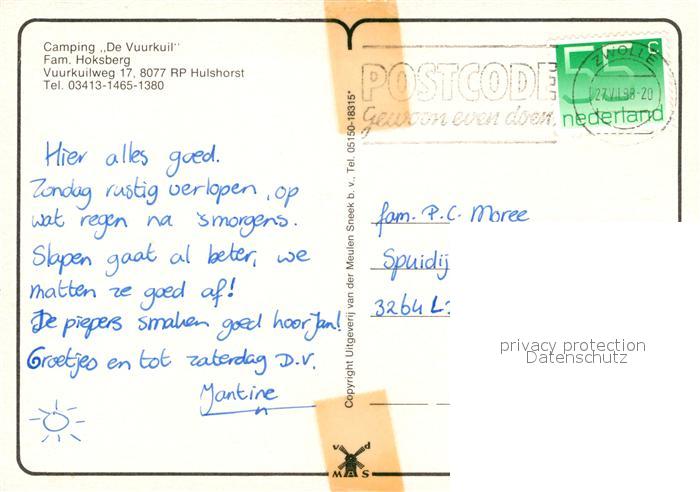 Camping „De Vuurkuil"
Fam. Hoksberg
Vuurkuilweg 17, 8077 RP Hulshorst
Tel. 03413-1465-1380
Hier alles goed.
Zondag rustig verlopen, op
wat regen na 'smorgens.
Slapen gaat al beter, we
matten ze goed af!
De piepers smaken goed hoor Jan!
Groetjes en tot zaterdag D.V.
Jantine
Copyright Uitgeverij van der Meulen Sneek b. v., Tel. 05150-18315*
v d
MAS
POSTCODE
Gewoon even doen.
55 c
nederland
ZWOLLE
27.VI.98-20
fam. P.C. Moree
Spuidij
3264 L
privacy protection
Datenschutz